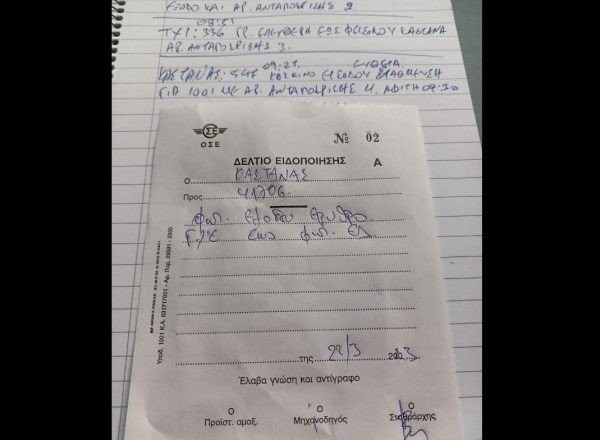 ΕΙΣΟΔΟ ΚΑΙ ΑΡ. ΑΝΤΑΠΟΚΡΙΣΗΣ 2
08:51
336 ΓΡ. ΕΛΕΥΘΕΡΑ ΕΩΣ
ΑΡ. ΑΝΤΑΠΟΚΡΙΣΗΣ 3.
09:27
ΚΑΣΤΑΝΑΣ: ΚΟΚΚΙΝΟ ΕΙΣΟΔΟΥ
ΓΙΑ 1001 ΜΕ ΑΡ. ΑΝΤΑΠΟΚΡΙΣΗΣ 4. ΑΦΙΞΗ 09:30
ΣΕ
ΟΣΕ
№ 02
ΔΕΛΤΙΟ ΕΙΔΟΠΟΙΗΣΗΣ Α
Ο ΚΑΣΤΑΝΑΣ
Προς 41706
φωτ. εισοδου ερυθρο
εως φωτ. εξ
της 22/3 2023
Έλαβα γνώση και αντίγραφο
Ο Ο Ο
Προϊστ. αμαξ. Μηχανοδηγός Σταθμάρχης